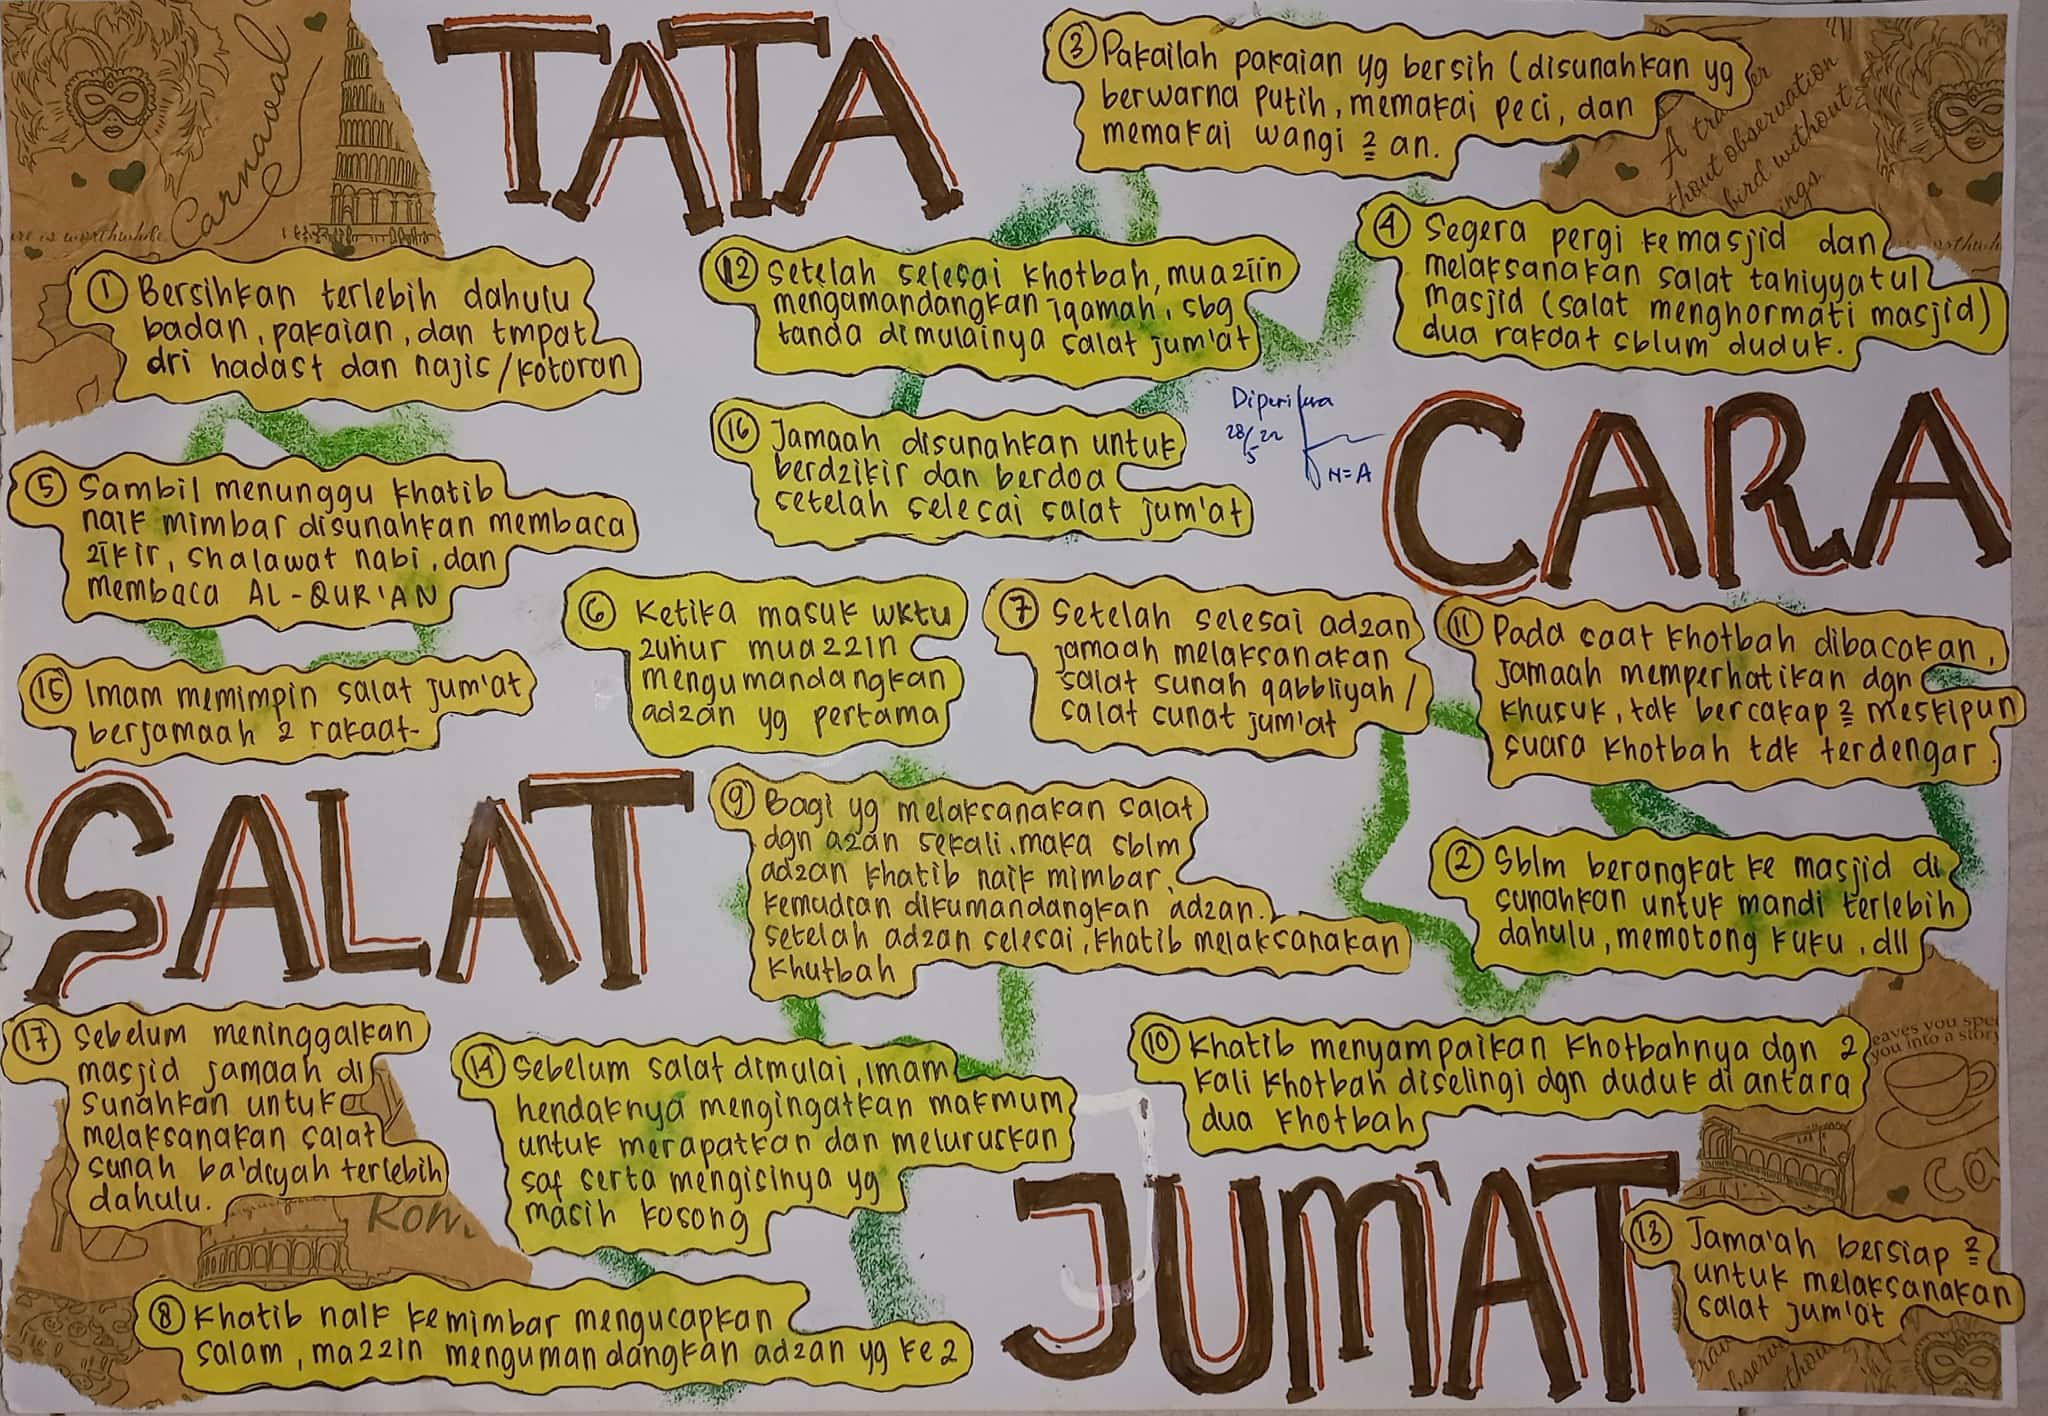 TATA
CARA
SALAT
JUM'AT
① Bersihkan terlebih dahulu
badan, pakaian, dan tmpat
dri hadast dan najis/kotoran
② Sblm berangkat ke masjid di
sunahkan untuk mandi terlebih
dahulu, memotong kuku, dll
③ Pakailah pakaian yg bersih (disunahkan yg
berwarna putih, memakai peci, dan
memakai wangi 2 an.
④ Segera pergi ke masjid dan
melaksanakan salat tahiyyatul
masjid (salat menghormati masjid)
dua rakaat sblum duduk.
⑤ Sambil menunggu khatib
naik mimbar disunahkan membaca
zikir, shalawat nabi, dan
membaca AL-QUR'AN
⑥ Ketika masuk wktu
zuhur muazzin
mengumandangkan
adzan yg pertama
⑦ Setelah selesai adzan
jamaah melaksanakan
salat sunah qabbliyah/
salat sunat jum'at
⑧ Khatib naik ke mimbar mengucapkan
salam, mazzin mengumandangkan adzan yg ke 2
⑨ Bagi yg melaksanakan salat
dgn azan sekali, maka sblm
adzan khatib naik mimbar,
kemudian dikumandangkan adzan.
setelah adzan selesai, khatib melaksanakan
khutbah
⑩ Khatib menyampaikan khotbahnya dgn 2
kali khotbah diselingi dgn duduk di antara
dua khotbah
⑪ Pada saat khotbah dibacakan,
jamaah memperhatikan dgn
khusuk, tdk bercakap 2 meskipun
suara khotbah tdk terdengar.
⑫ Setelah selesai khotbah, muaziin
mengamandangkan iqamah, sbg
tanda dimulainya salat jum'at
⑬ Jama'ah bersiap 2
untuk melaksanakan
salat jum'at
⑭ Sebelum salat dimulai, imam
hendaknya mengingatkan makmum
untuk merapatkan dan meluruskan
saf serta mengisinya yg
masih kosong
⑮ Imam memimpin salat jum'at
berjamaah 2 rakaat.
⑯ Jamaah disunahkan untuk
berdzikir dan berdoa
setelah selesai salat jum'at
⑰ Sebelum meninggalkan
masjid jamaah di
sunahkan untuk
melaksanakan salat
sunah ba'diyah terlebih
dahulu.
Diperiksa
28/5 22
N=A
Carnaval
A tra er
thout observation
bird without
ings.
eaves you spe
you into a story